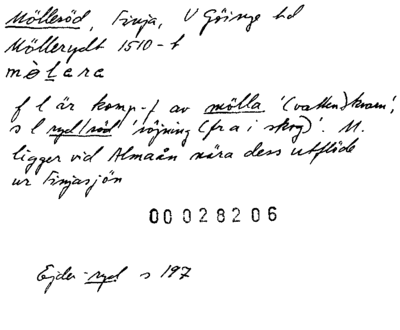 Mölleröd, Finja, V Göinge hd
Möllerydt 1510-t
mè̱lara
f l är komp-f av mölla '(vatten)kvarn',
s l ryd/röd 'röjning (fr a i skog)'. M.
ligger vid Almaån nära dess utflöde
ur Finjasjön
00028206
Ejder-ryd s 197